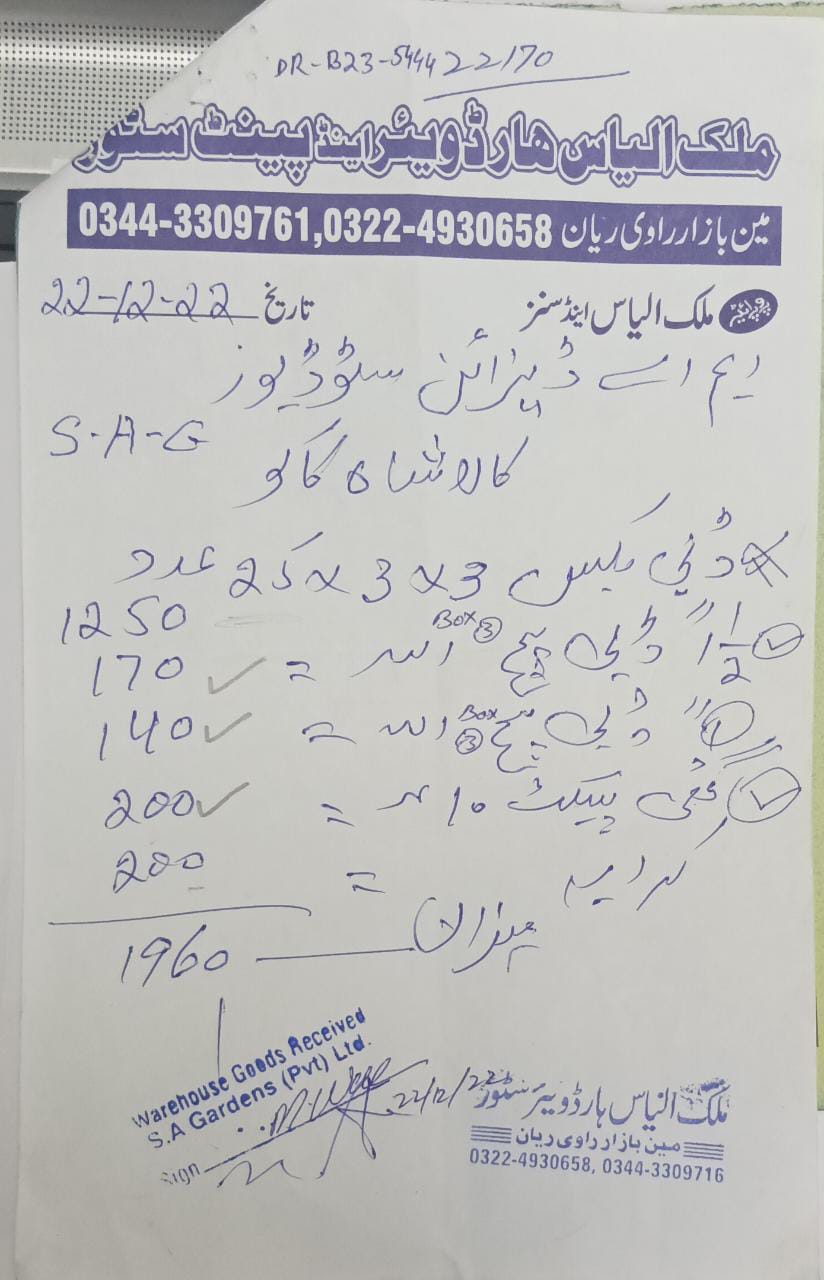 DR-B23-5444 22170
ملک الیاس ھارڈویئر اینڈ پینٹ سٹور
مین بازار راوی ریان 0344-3309761,0322-4930658
پروپرائیٹر ملک الیاس اینڈ سنز تاریخ 22-12-22
ایم اے ڈیزائن سٹوڈیوز
S-A-G
کالا شاہ کاکو
ڈبی بکس 3 x 3 x 25 عدد
1250
1 1/2" ڈبی پیچ Box 3 = 170 ✓
1" ڈبی پیچ Box 3 = 140 ✓
پیکٹ 10 = 200 ✓
کرایہ = 200
میزان 1960
Warehouse Goods Received
S.A Gardens (Pvt) Ltd.
Sign
22/12/22
ملک الیاس ہارڈویئر سٹور
مین بازار راوی ریان
0322-4930658, 0344-3309716